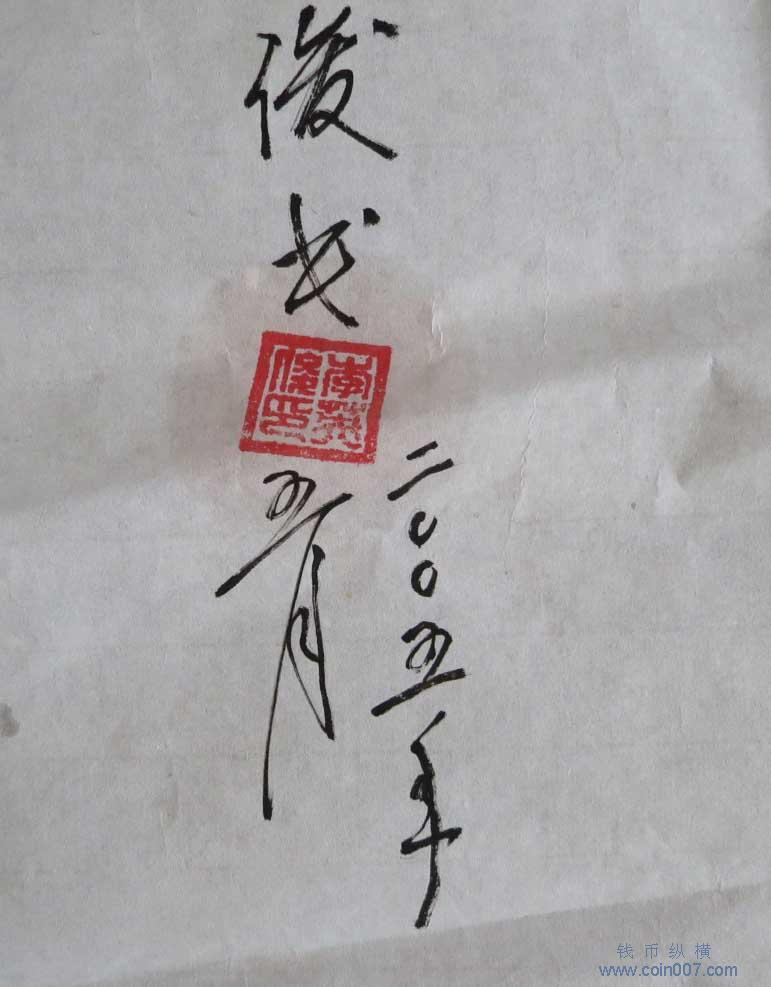 俊书
二〇〇五年
五月
钱币纵横
www.coin007.com